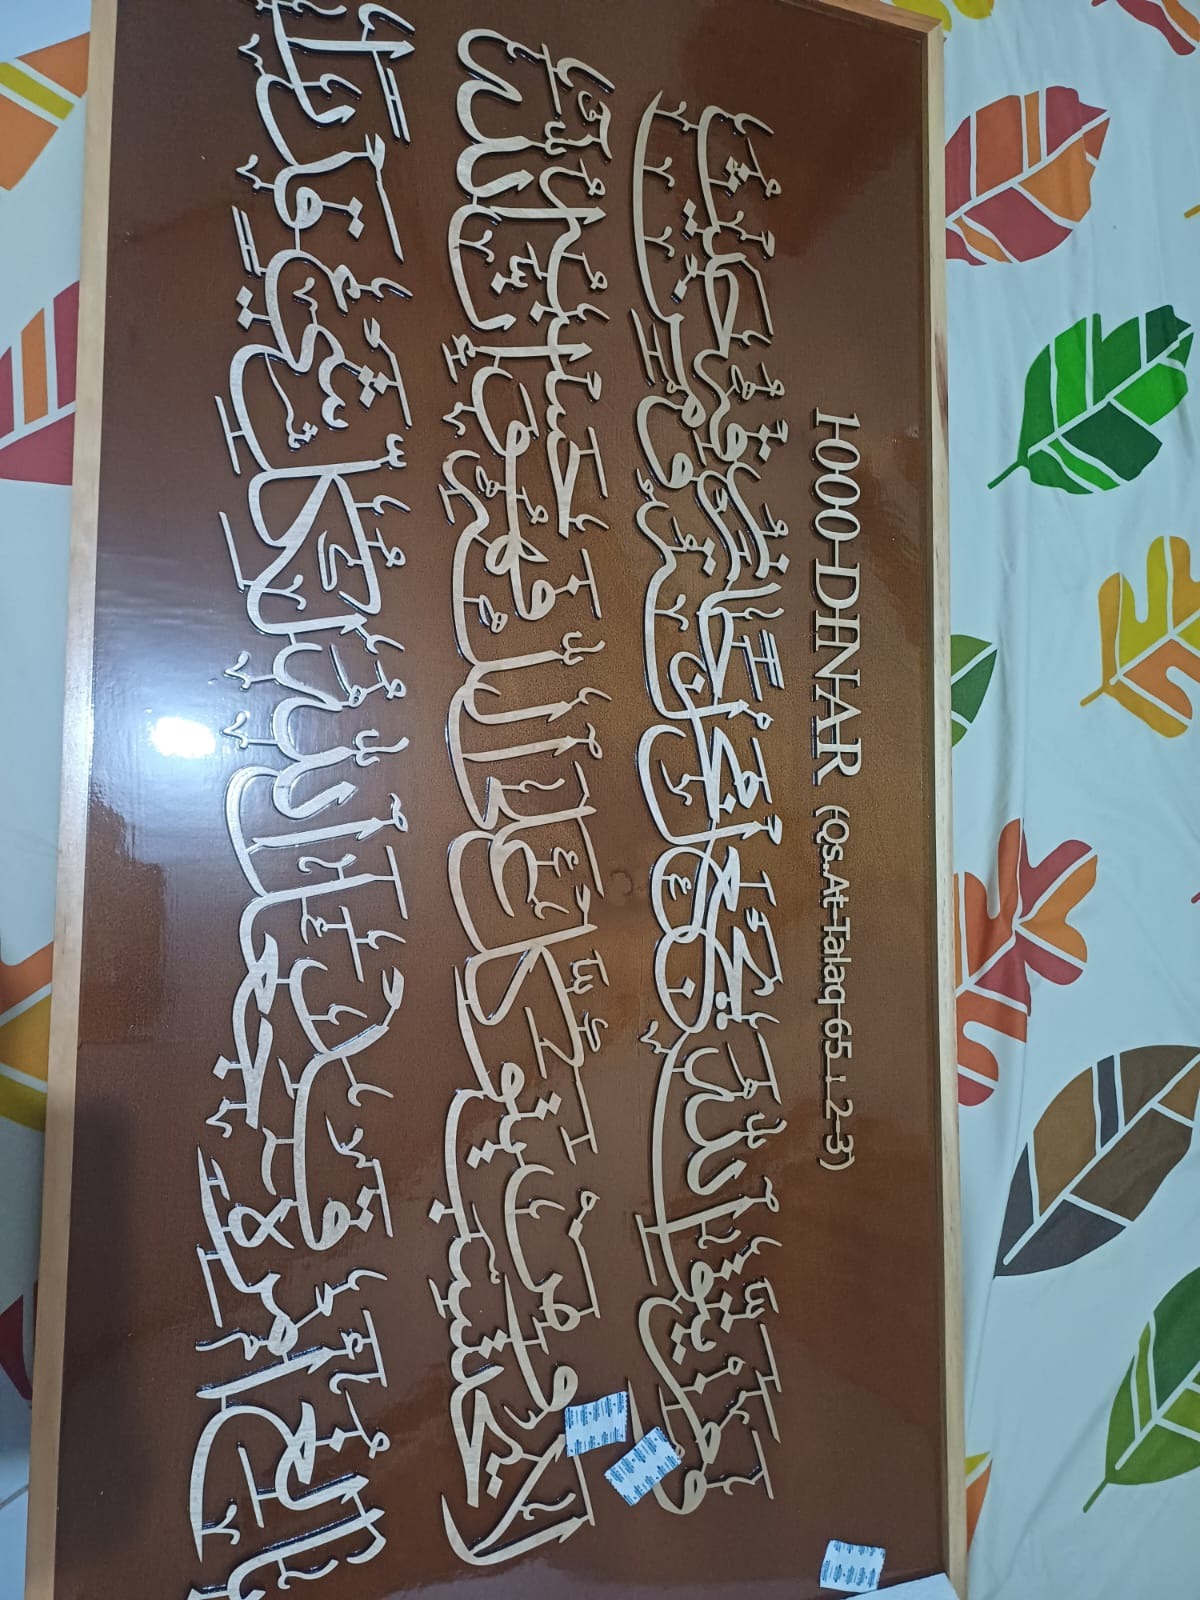 1000 DINAR (Qs. At-Talaq 65 : 2-3)
وَمَنْ يَتَّقِ اللَّهَ يَجْعَلْ لَهُ مَخْرَجًا وَيَرْزُقْهُ مِنْ حَيْثُ
لَا يَحْتَسِبُ وَمَنْ يَتَوَكَّلْ عَلَى اللَّهِ فَهُوَ حَسْبُهُ إِنَّ اللَّهَ
بَالِغُ أَمْرِهِ قَدْ جَعَلَ اللَّهُ لِكُلِّ شَيْءٍ قَدْرًا